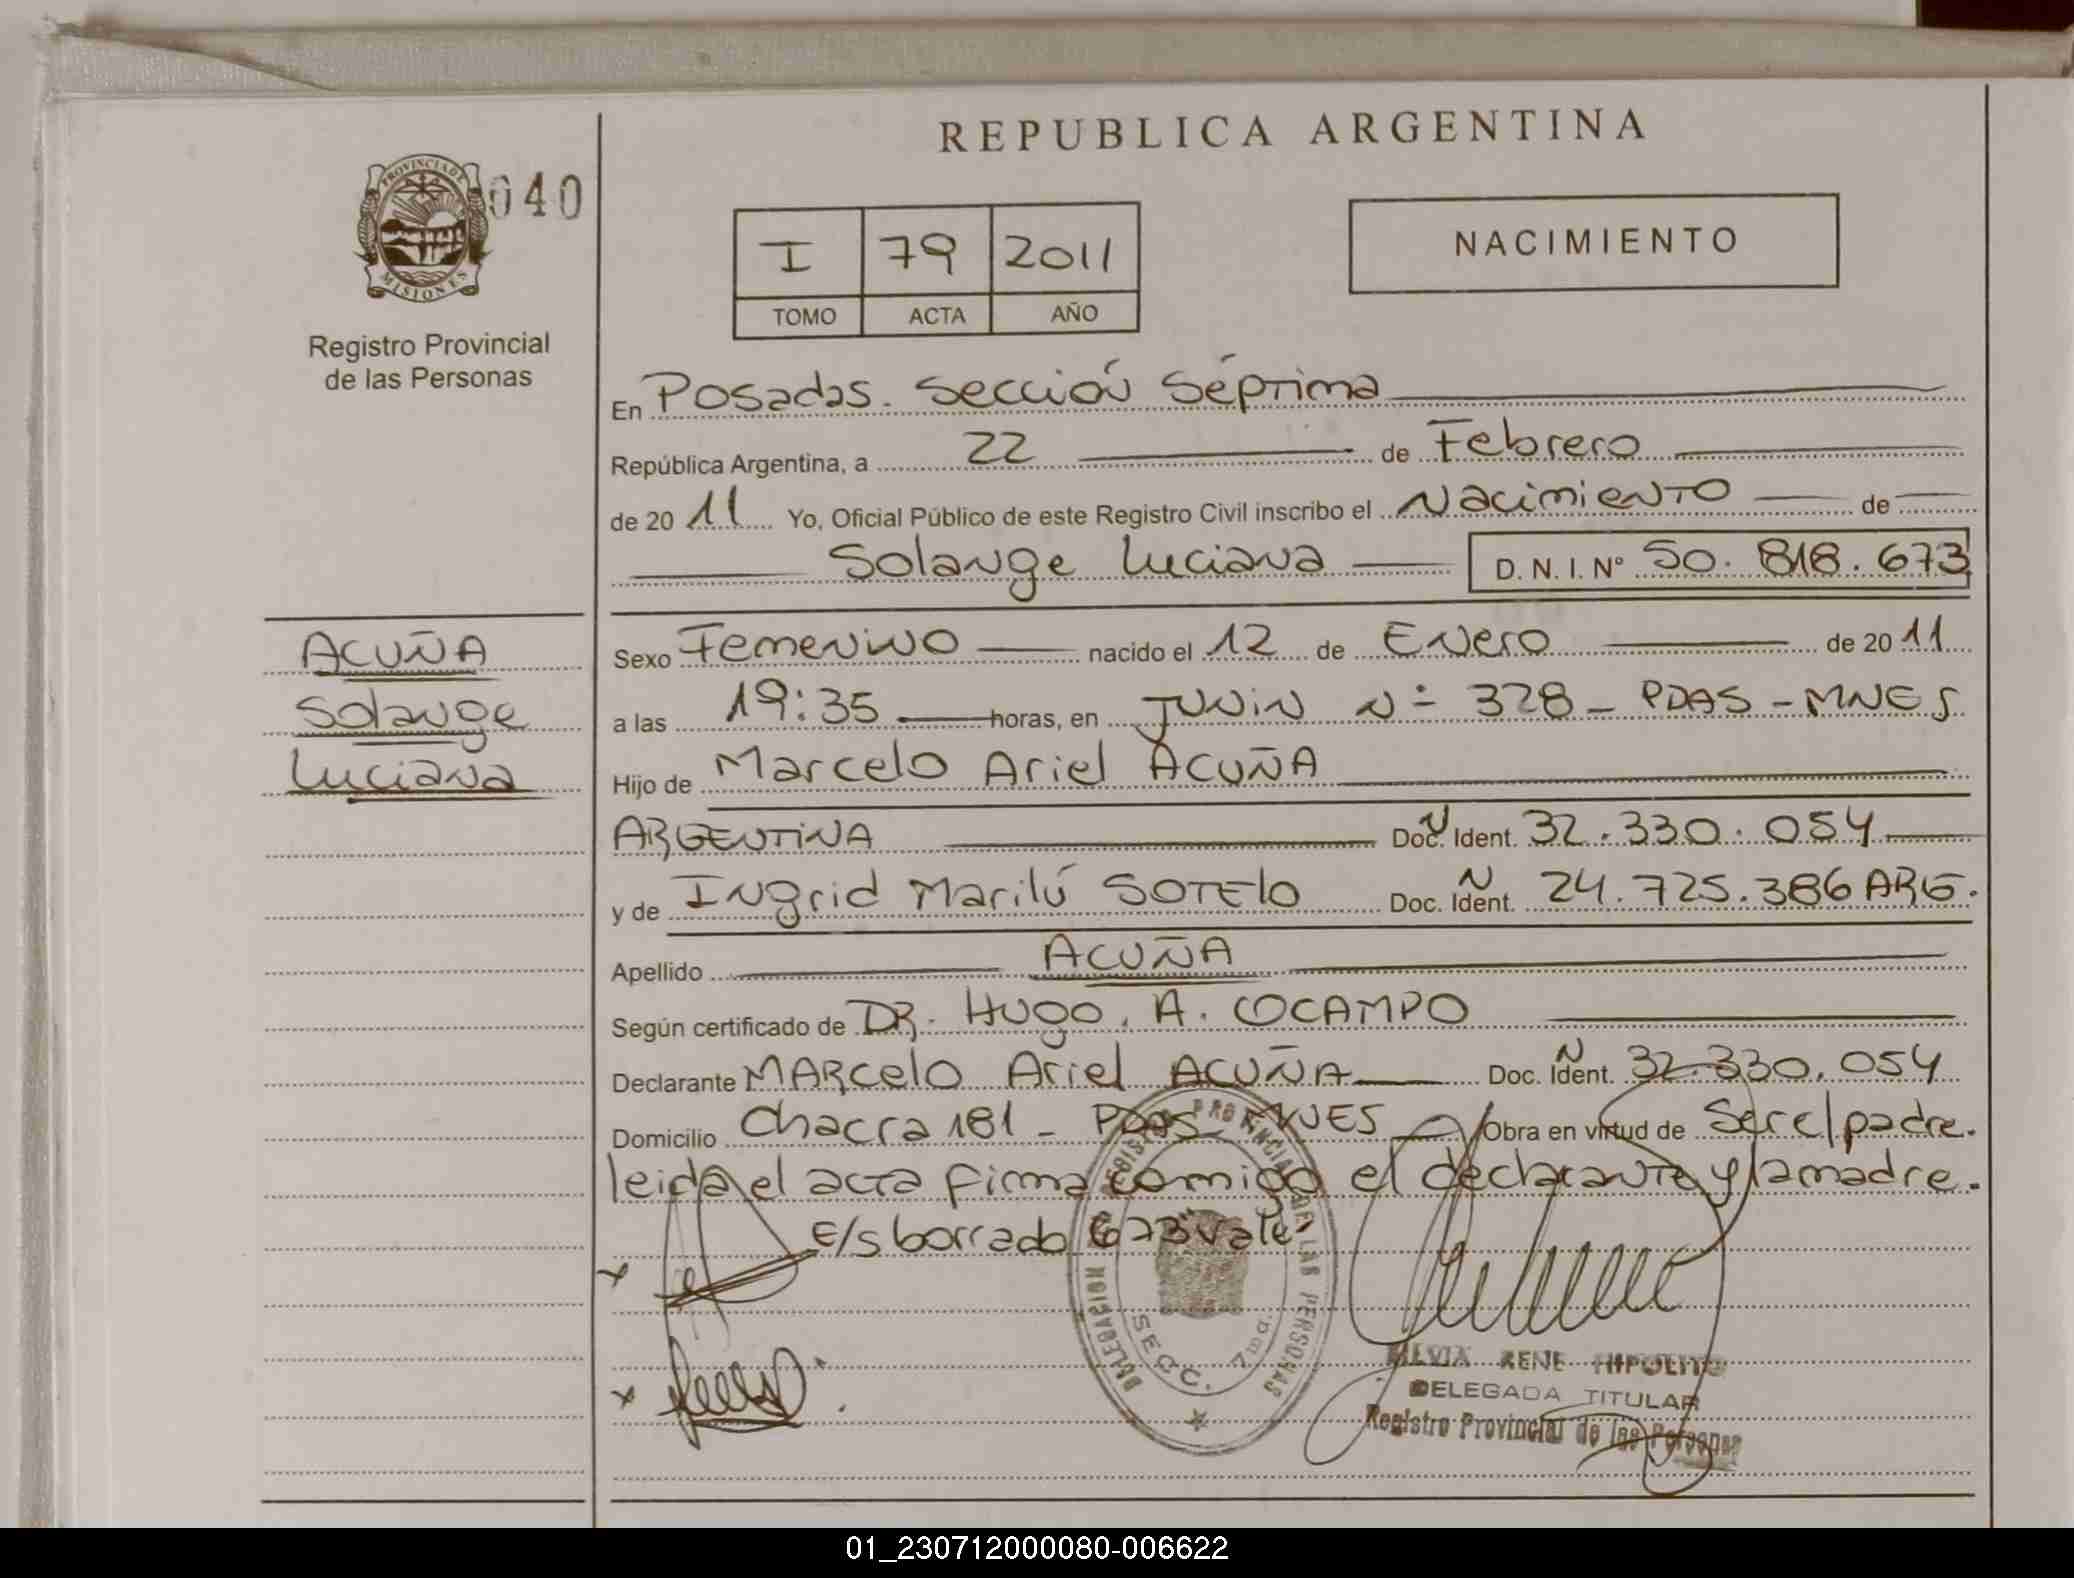 REPUBLICA ARGENTINA
PROVINCIA DE MISIONES
040
Registro Provincial
de las Personas
I 79 2011
TOMO ACTA AÑO
NACIMIENTO
En Posadas. Sección Séptima
República Argentina, a 22 de Febrero
de 2011 Yo, Oficial Público de este Registro Civil inscribo el Nacimiento de
Solange Luciana D. N. I. Nº 50.818.673
ACUÑA
Solange
Luciana
Sexo Femenino nacido el 12 de Enero de 2011
a las 19:35 horas, en JUNiN Nº 328 - PDAS - MNES
Hijo de Marcelo Ariel ACUÑA
ARGENTINA Doc. Ident. N 32.330.054
y de Ingrid Marilú SOTElo Doc. Ident. N 24.725.386 ARG.
Apellido ACUÑA
Según certificado de DR. HUgo. A. OCAMPO
Declarante MARcelo Ariel ACUÑA Doc. Ident. N 32.330.054
Domicilio Chacra 181 - PDAS - MNES Obra en virtud de Ser el padre.
leida el acta firma comigo el declarante y la madre.
E/s borrado "673" vale
DELEGACION REGISTRO PROVINCIAL DE LAS PERSONAS
SECC. 7ma.
SILVIA RENE HIPOLITO
DELEGADA TITULAR
Registro Provincial de las Personas
01_230712000080-006622